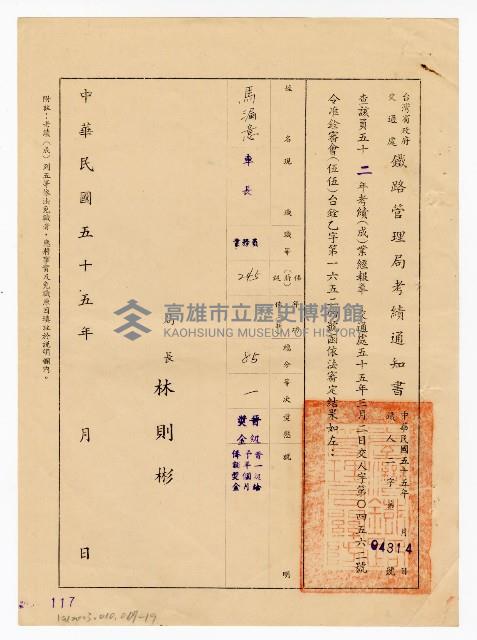 台灣省政府
交通處
鐵路管理局考績通知書
中華民國五十五年 月 日
鐵人二字第 04314 號
查該員五十二年考績(成)業經報奉 交通處五十五年三月二日交人字第〇四五六二號
令准銓審會(伍伍)台銓乙字第一六五二 函依法審定結果如左:
姓名 現職 職等 總分 等次 獎懲 說明
馬涵意
車長
業務員
245
85
一
晉級
獎金
晉一級給
予半個月
俸額獎金
局長 林則彬
中華民國五十五年 月 日
附註:考績(成)列五等依法免職者,應將事實及免職原因填註於說明欄內。
高雄市立歷史博物館
KAOHSIUNG MUSEUM OF HISTORY
117